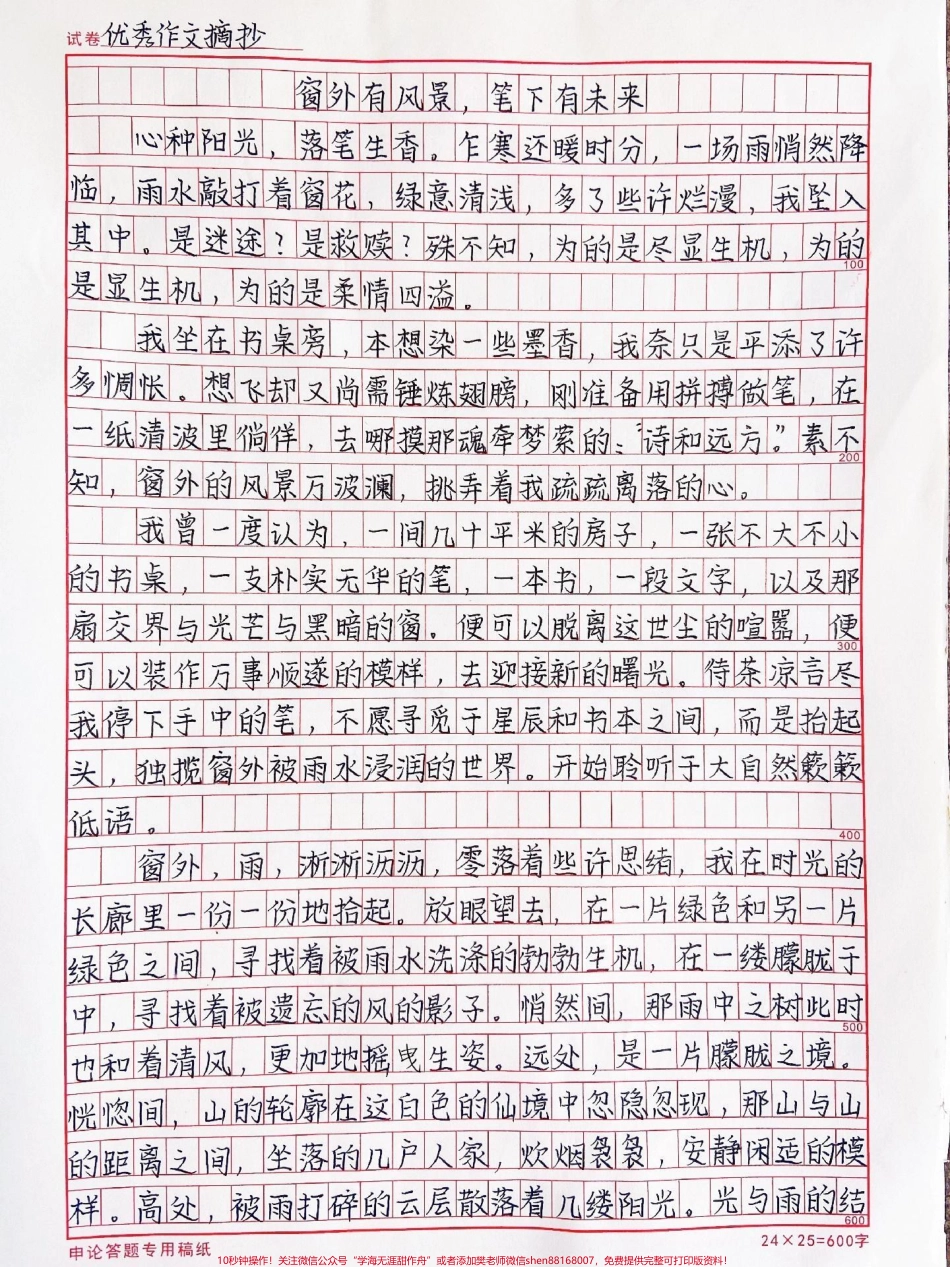 试卷 优秀作文摘抄
窗外有风景，笔下有未来
心种阳光，落笔生香。乍寒还暖时分，一场雨悄然降
临，雨水敲打着窗花，绿意清浅，多了些许烂漫，我坠入
其中。是迷途？是救赎？殊不知，为的是尽显生机，为的
100
是显生机，为的是柔情四溢。
我坐在书桌旁，本想染一些墨香，我奈只是平添了许
多惆怅。想飞却又尚需锤炼翅膀，刚准备用拼搏做笔，在
一纸清波里徜徉，去哪摸那魂牵梦萦的：“诗和远方”。素不
200
知，窗外的风景万波澜，挑弄着我疏疏离落的心。
我曾一度认为，一间几十平米的房子，一张不大不小
的书桌，一支朴实无华的笔，一本书，一段文字，以及那
扇交界与光芒与黑暗的窗。便可以脱离这世尘的喧嚣，便
300
可以装作万事顺遂的模样，去迎接新的曙光。侍茶凉言尽
我停下手中的笔，不愿寻觅于星辰和书本之间，而是抬起
头，独揽窗外被雨水浸润的世界。开始聆听于大自然簌簌
低语。
400
窗外，雨，淅淅沥沥，零落着些许思绪，我在时光的
长廊里一份一份地拾起。放眼望去，在一片绿色和另一片
绿色之间，寻找着被雨水洗涤的勃勃生机，在一缕朦胧于
中，寻找着被遗忘的风的影子。悄然间，那雨中之树此时
500
也和着清风，更加地摇曳生姿。远处，是一片朦胧之境。
恍惚间，山的轮廓在这白色的仙境中忽隐忽现，那山与山
的距离之间，坐落的几户人家，炊烟袅袅，安静闲适的模
样。高处，被雨打碎的云层散落着几缕阳光。光与雨的结
600
申论答题专用稿纸
24×25=600字
10秒钟操作！关注微信公众号“学海无涯甜作舟”或者添加樊老师微信shen88168007，免费提供完整可打印版资料！